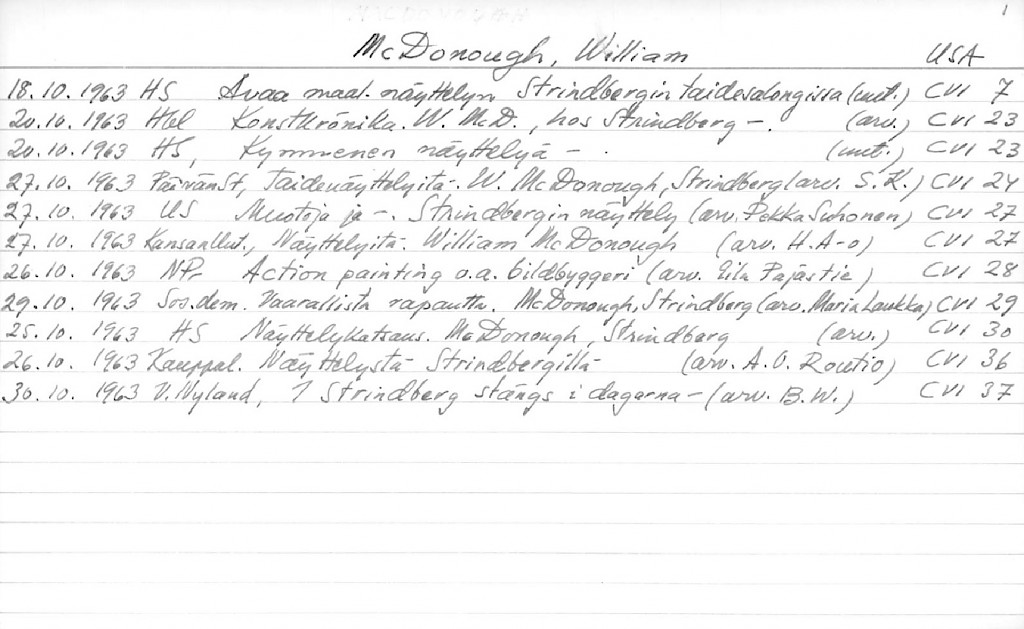 1
McDonough, William USA
18.10.1963 HS Avaa maal. näyttelyn Strindbergin taidesalongissa (uut.) CVI 7
20.10.1963 Hbl Konstkrönika. W. McD., hos Strindberg -. (arv.) CVI 23
20.10.1963 HS, Kymmenen näyttelyä - . (uut.) CVI 23
27.10.1963 PäivänS, Taidenäyttelyitä. W. McDonough, Strindberg (arv. S.K.) CVI 24
27.10.1963 US Muotoja ja -. Strindbergin näyttely (arv. Pekka Suhonen) CVI 27
27.10.1963 Kansanllut., Näyttelyitä. William McDonough (arv. H.A-o) CVI 27
26.10.1963 NP Action painting o.a. bildbyggeri (arv. Eila Pajastie) CVI 28
29.10.1963 Sos.dem. Vaarallista rapautta. McDonough, Strindberg (arv. Maria Laukka) CVI 29
25.10.1963 HS Näyttelykatsaus. McDonough, Strindberg (arv.) CVI 30
26.10.1963 Kauppal. Näyttelystä Strindbergillä (arv. A.O. Routio) CVI 36
30.10.1963 V.Nyland, I Strindberg stängs i dagarna - (arv. B.W.) CVI 37